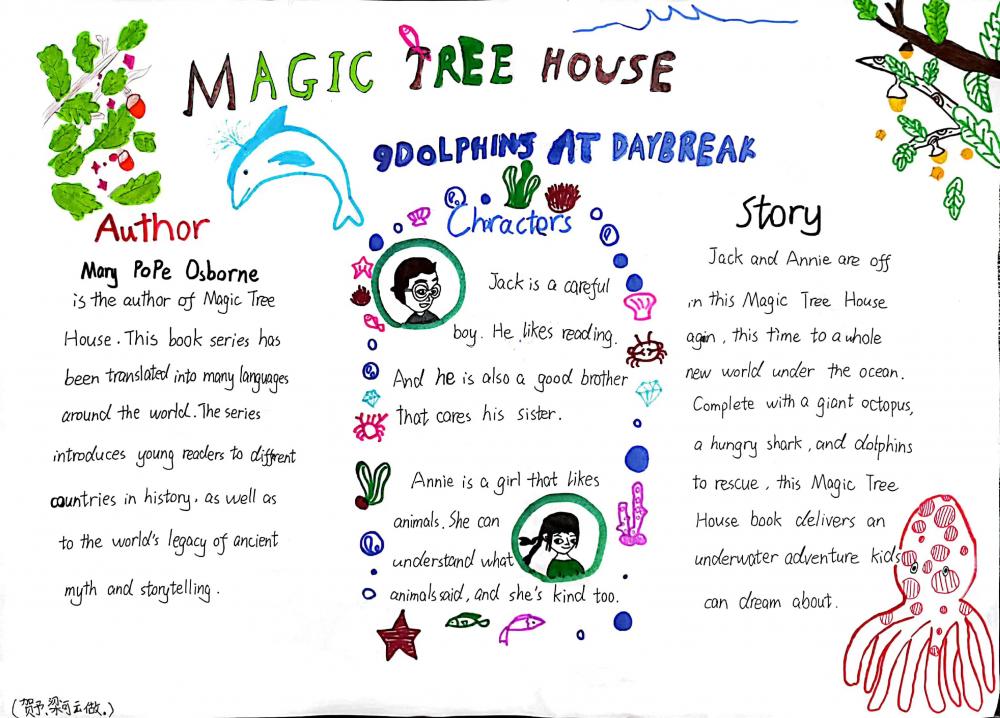 MAGIC TREE HOUSE
9 DOLPHINS AT DAYBREAK
Author
Mary PoPe Osborne
is the author of Magic Tree
House. This book series has
been translated into many languages
around the world. The series
introduces young readers to different
countries in history, as well as
to the world's legacy of ancient
myth and storytelling.
Characters
Jack is a careful
boy. He likes reading.
And he is also a good brother
that cares his sister.
Annie is a girl that likes
animals. She can
understand what
animals said, and she's kind too.
Story
Jack and Annie are off
in this Magic Tree House
again, this time to a whole
new world under the ocean.
Complete with a giant octopus,
a hungry shark, and dolphins
to rescue, this Magic Tree
House book delivers an
underwater adventure kids
can dream about.